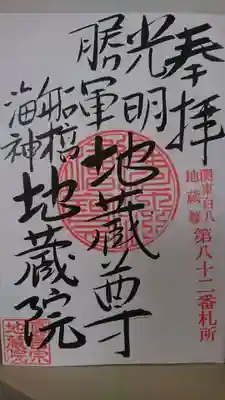 奉拝
関東百八
地蔵尊
第八十二番札所
光明
勝軍
地蔵尊
船橋
海神
地蔵院
地蔵院